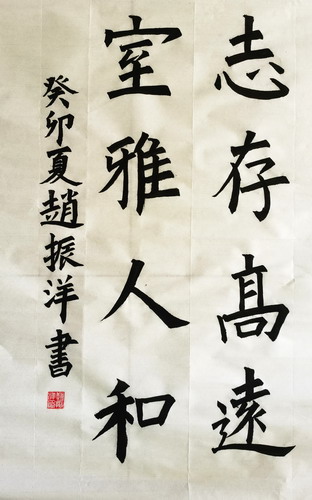 志存高遠
室雅人和
癸卯夏趙振洋書